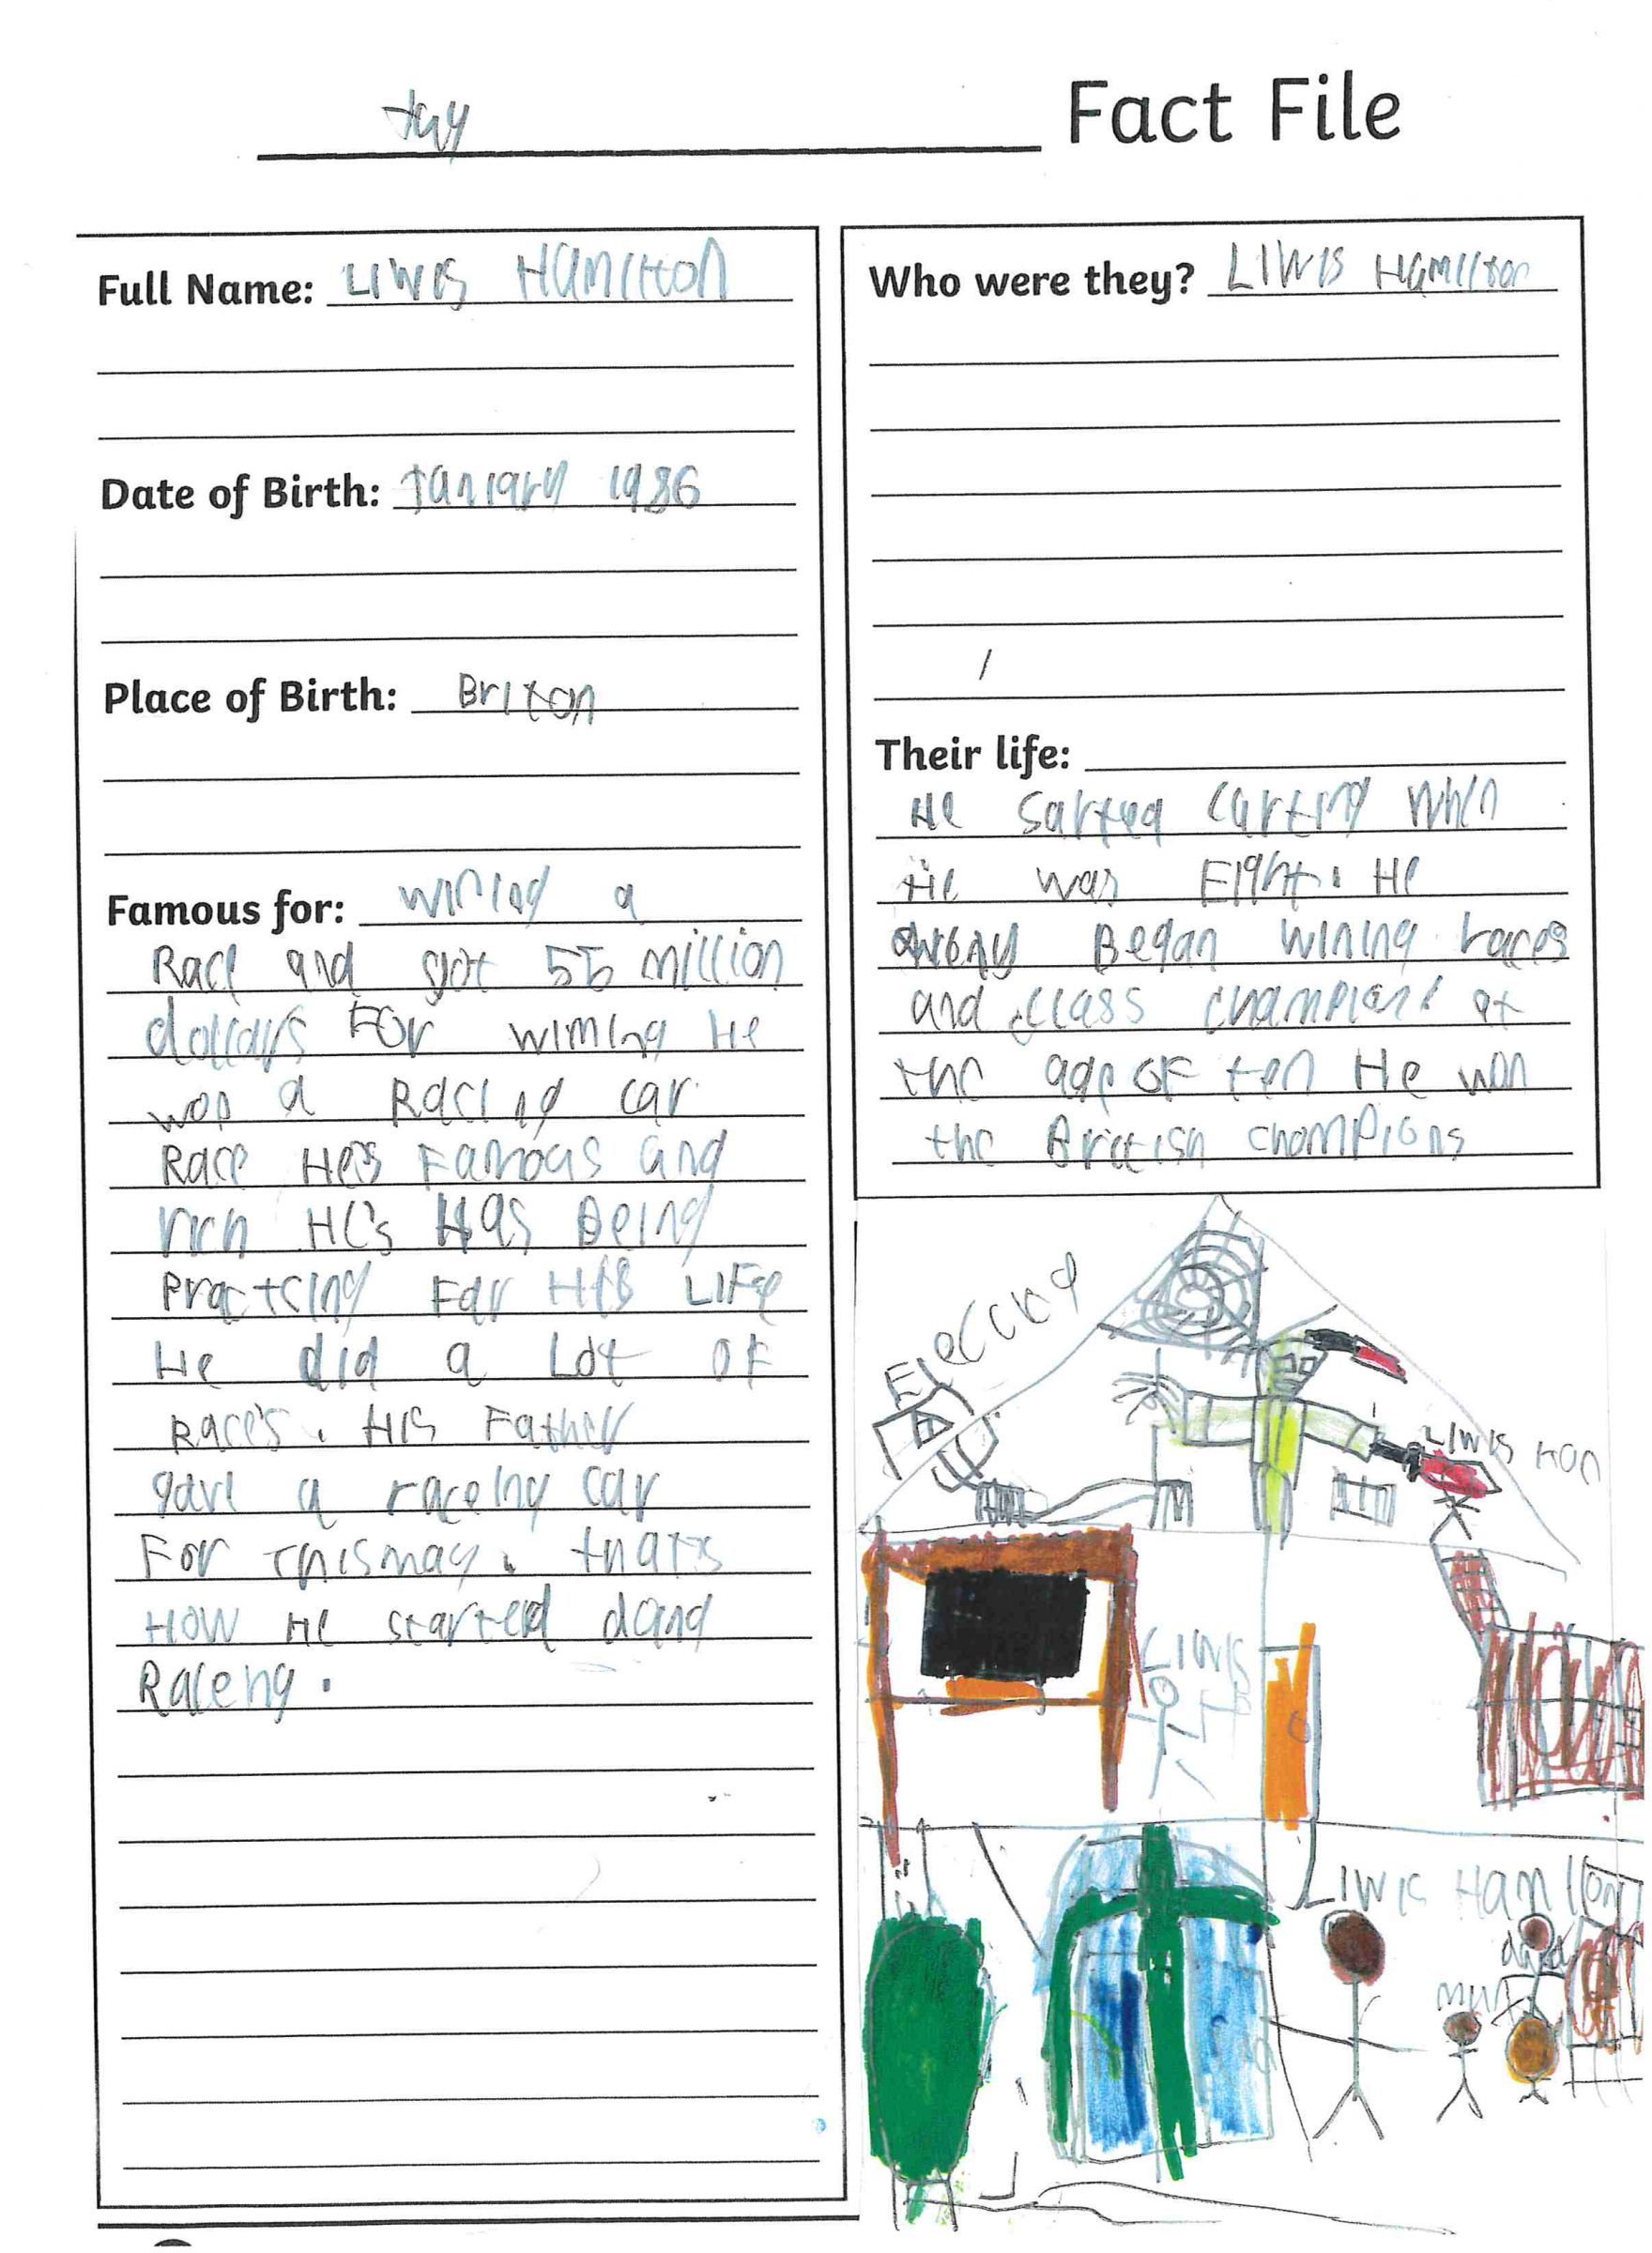 Jay Fact File
Full Name: Liwis Hamilton
Date of Birth: Janiary 1986
Place of Birth: Briton
Famous for: wining a
Race and got 55 million
dollars For wining He
won a Racing car
Race He's Famous and
rich He's Has Being
Practcing For His Life
He did a Lot of
Race's. His Father
gave a raceing car
For This may. that's
How He started doing
Raceng.
Who were they? Liwis Hamilton
Their life:
He sarted carting when
He was Eight. He
Began wining races
and class champions at
the age of ten He won
the British champions
Liwis
Liwis
Liwis Hamilton
dad
mum